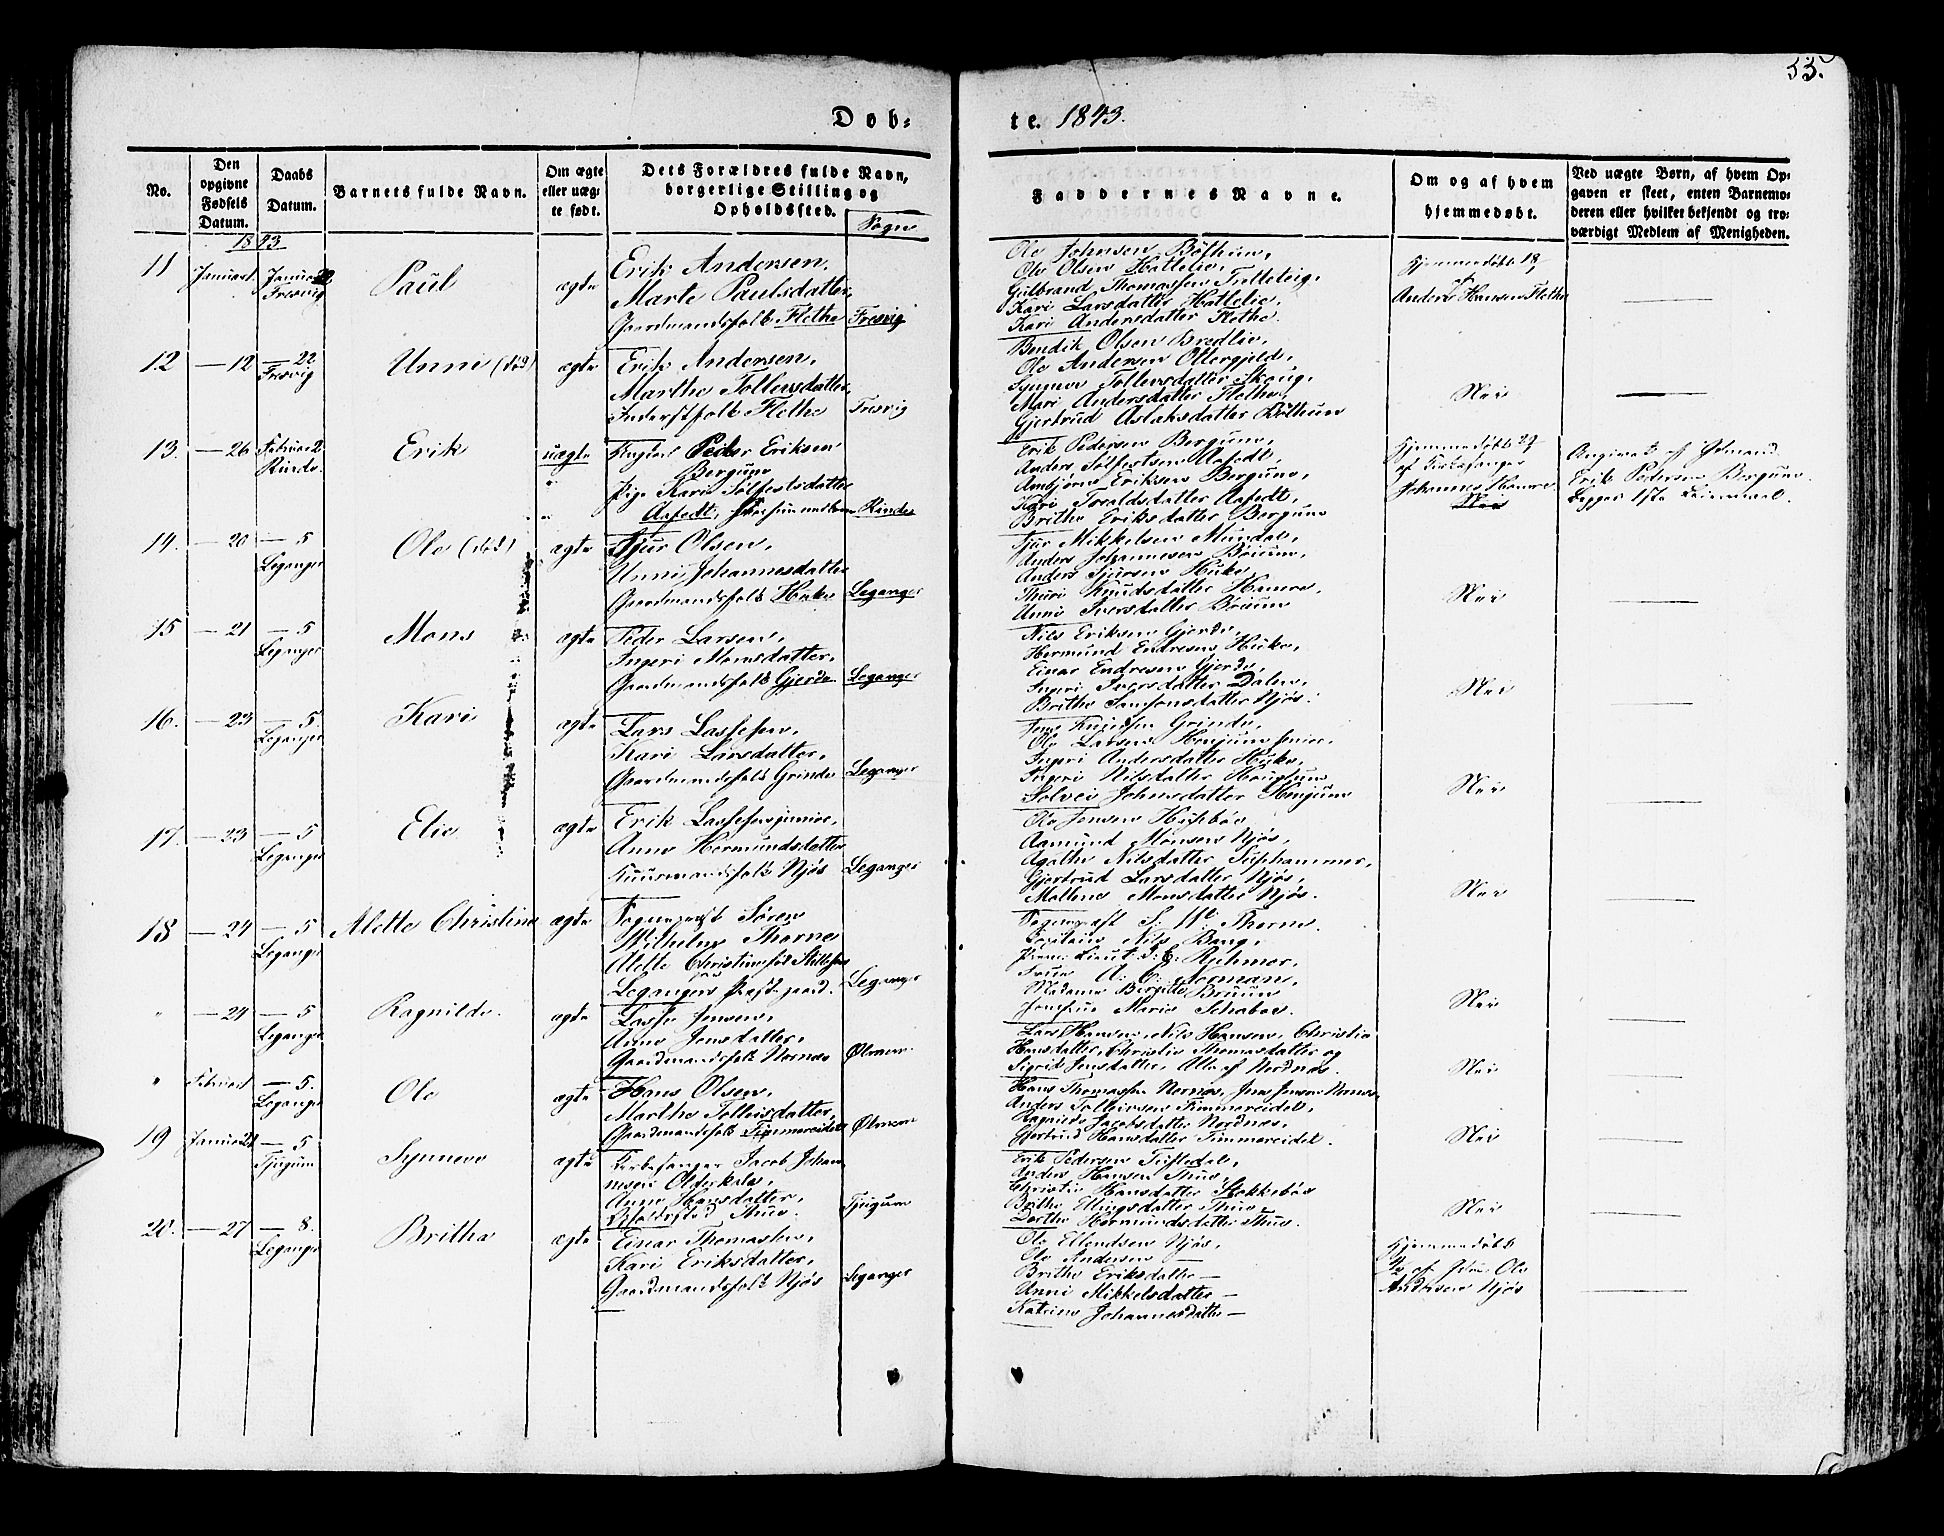 33.
Døb=
te. 1843.
No.
Den opgivne Fødsels Datum.
Daabs Datum.
Barnets fulde Navn.
Om ægte eller uæg= te født.
Dets Forældres fulde Navn, borgerlige Stilling og Opholdssted.
Sogn
Faddernes Navne.
Om og af hvem hjemmedøbt.
Ved uægte Børn, af hvem Op= gaven er skeet, enten Barnemo= deren eller hvilket bekjendt og tro= værdigt Medlem af Menigheden.
1843
11
Januar
Januar 22
Fresvig
Paul
ægte
Erik Andersen,
Marte Paulsdatter,
Gaardmandsfolk Flethe
Fresvig
Ole Johnsen Bøthun,
Ole Olsen Hattelie,
Gulbrand Thomassen Tuttevig,
Kari Larsdatter Hattelie,
Kari Andersdatter Flethe.
Hjemmedøbt 18/
af
Anders Hansen Flethe
12
— 12
— 22
Fresvig
Unni (død)
ægte
Erik Andersen,
Marthe Tollevsdatter,
Inderstfolk Flethe
Fresvig
Bendik Olsen Bredlie,
Ole Andersen Ottergjeld,
Synneve Tollevsdatter Skoug,
Mari Andersdatter Flethe,
Gjertrud Aslaksdatter Bøthun
Nei
13.
— 26
Februar 2
Rinde
Erik
uægte
Ungkarl Peder Eriksen
Bergum
Pige Kari Sølfestsdatter
Aafedt,
Rinde
Erik Pedersen Bergum,
Anders Sølfestsen Aafedt,
Ambjørn Eriksen Bergum,
Kari Troaldsdatter Aafedt,
Brithe Eriksdatter Bergum
Hjemmedøbt 27
af Kirkesanger
Johannes Hamre
Nei
Angivet af Formand
Erik Pedersen Bergum.
Begges 1ste Leiermaal.
14.
— 20
— 5
Leganger
Ole (død)
ægte
Sjur Olsen,
Unni Johannesdatter
Gaardmandsfolk Huke
Leganger
Sjur Mikkelsen Mundal,
Anders Johannesen Bøium,
Anders Sjursen Huke,
Thuri Knudsdatter Hamre,
Unni Iversdatter Bøium
Nei
15
— 21
— 5
Leganger
Mons
ægte
Peder Larsen,
Ingeri Monsdatter,
Gaardmandsfolk Gjerde
Leganger
Nils Eriksen Gjerde,
Hermund Endresen Huke,
Einar Endresen Gjerde,
Ingeri Iversdatter Dalen,
Brithe Samsonsdatter Njøs.
Nei
16.
— 23
— 5.
Leganger
Kari
ægte
Lars Lassesen,
Kari Larsdatter,
Gaardmandsfolk Grinde
Leganger
Jens Knudsen Grinde,
Ole Larsen Henjum senior,
Ingeri Andersdatter Huke,
Ingeri Nilsdatter Haugum
Solvei Johnsdatter Henjum
Nei
17.
— 23
— 5
Leganger
Elie
ægte
Erik Lassesen junior,
Anne Hermundsdatter
Huusmandsfolk Njøs
Leganger
Ole Jensen Husebøe
Aamund Monsen Njøs,
Agathe Nilsdatter
Gjertrud Larsdatter Njøs,
Mallene Monsdatter Njøs.
Nei
18
— 24
— 5
Leganger
Alette Christine
ægte
Sognepræst Søren
Wilhelm Thorne
Alette Christine fød Stillesen
Legangers Præstegaard.
Leganger
Sognepræst S: W: Thorne.
Capitain Nils Bang,
Prem: Lieut: J: C: Richmer,
Frue A: C: Normann,
Madame Birgitte Bruun
Jomfrue Marie Schaboe.
Nei
"
— 24
— 5
Leganger
Ragnilde.
ægte
Lasse Jensen,
Anne Jensdatter,
Gaardmandsfolk Nornæs
Ølmem
Lars Hansen, Nils Hansen, Christie
Hansdatter, Christie Thomasdatter og
Sigrid Jensdatter, Alle af Nordnæs.
Nei
"
Februar 1
— 5.
Leganger
Ole
ægte
Hans Olsen,
Marthe Tollevsdatter,
Gaardmandsfolk Timmereidet
Ølmem
Hans Thomassen Nornæs, Jens Jensen Nornæs,
Anders Tolleivsen Timmereidet,
Ragnilde Jacobsdatter Nordnæs,
Gjertrud Hansdatter Timmereidet.
Nei
19
Januar 21
— 5
Tjugum
Synneve
ægte
Kirkesanger Jacob Johan
nesen Olderkals,
Anne Hansdatter,
Opholdssted Thue.
Tjugum
Erik Pedersen Tuftedal,
Anders Hansen Thue,
Christie Hansdatter Stokkebøe
Brithe Ellingsdatter Thue
Dorthe Hermundsdatter Thue.
Nei
20.
— 27
— 8.
Leganger
Brithe
ægte
Einar Thomassen,
Kari Eriksdatter,
Gaardmandsfolk Njøs
Leganger
Ole Ellendsen Njøs,
Ole Andersen —
Brithe Eriksdatter —
Anni Mikkelsdatter —
Katrine Johannesdatter —
Hjemmedøbt
af Ole
Andersen Njøs